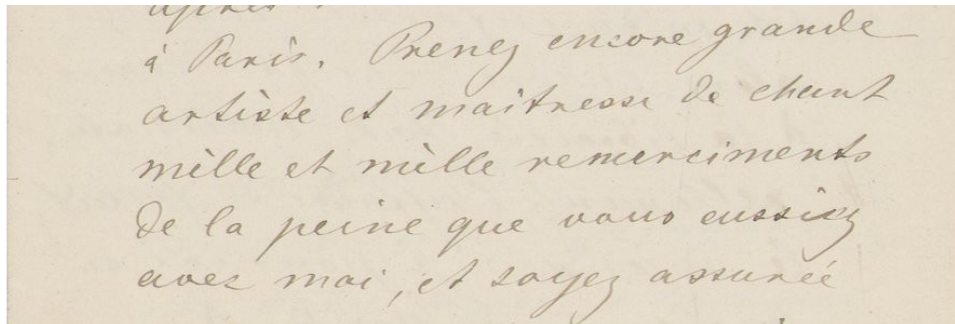 à Paris. Prenez encore grande
artiste et maitresse de chant
mille et mille remerciments
de la peine que vous eussiez
avec moi, et soyez assurée